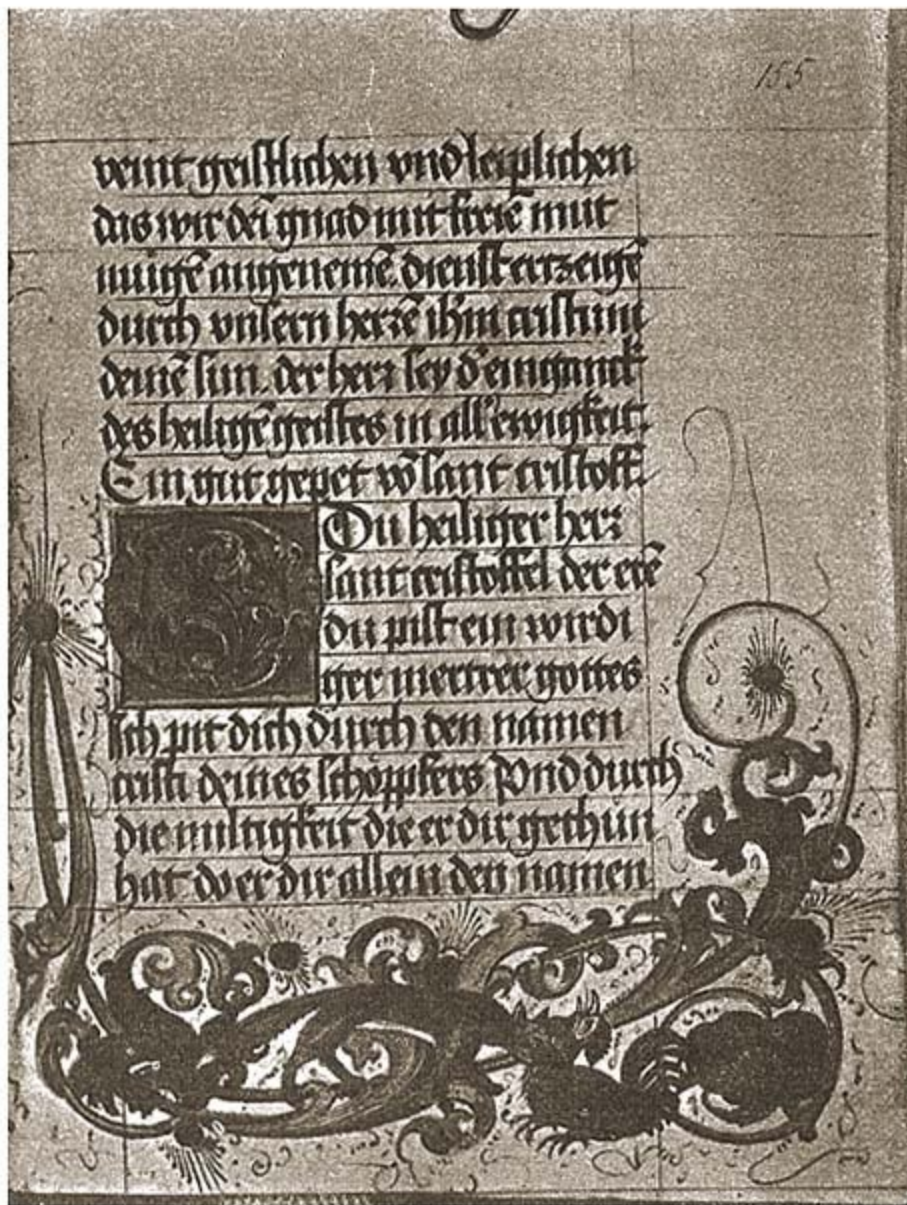 155
veint geistlichen vnd leiplichen
das wir dei͂ gnad mit freie͂ mut
müge͂ angeneme͂ dienst erzeige͂
durch vnsern herre͂ ih̄m cristum
deine͂ sun. der herr sey d' eingank
des heilige͂ geistes in all' ewigkeit.
Ein gut gepet vo͂ sant cristoff.
Du heiliger herr
sant cristoffel der ere͂
du pist ein wirdi
ger mertrer gottes
Ich pit dich durch den namen
cristi deines schöpffers Vnd durch
die miltigkeit die er dir gethun
hat do er dir allein den namen